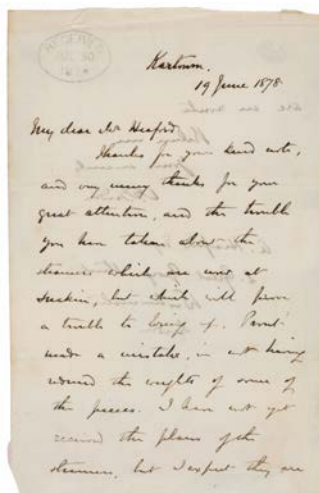 RECEIVED
JUL 30
1878
Kartoum.
19 June 1878
My dear Mr
Thanks for your kind note,
and very many thanks for your
great attention, and the trouble
you have taken about the
steamers which are now at
Suakin, but which will prove
a trouble to bring up. Prout
made a mistake, in not having
reduced the weights of some of
the pieces. I have not yet
received the plans of the
steamers, but I expect they are